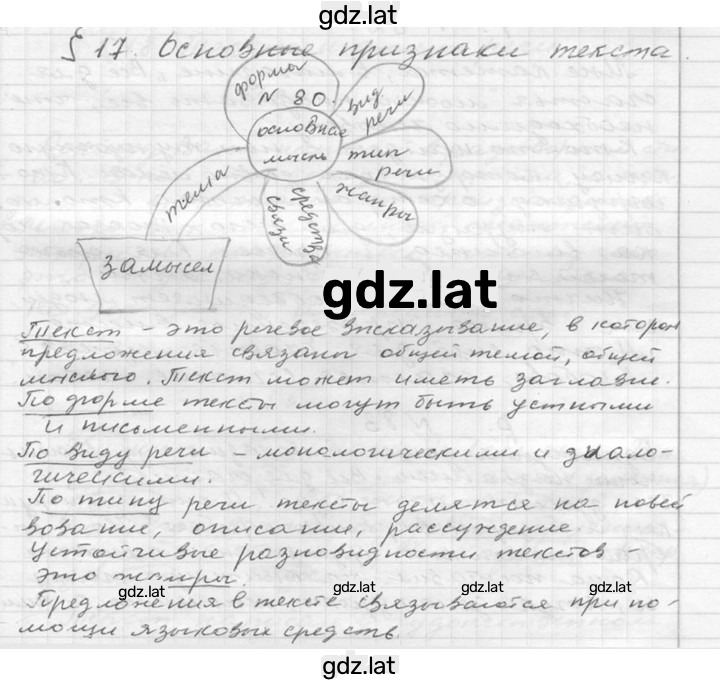 gdz.lat
§ 17. Основные признаки текста.
форма
N 80.
вид
речи
основная
мысль
тип
речи
жанры
средства
связи
тема
замысел
gdz.lat
Текст - это речевое высказывание, в котором
предложения связаны общей темой, общей
мыслью. Текст может иметь заглавие.
По форме тексты могут быть устными
и письменными.
По виду речи - монологическими и диало-
гическими.
По типу речи тексты делятся на повест
вование, описание, рассуждение.
Устойчивые разновидности текстов -
это жанры.
gdz.lat gdz.lat gdz.lat
Предложения в тексте связываются при по-
мощи языковых средств.
gdz.lat